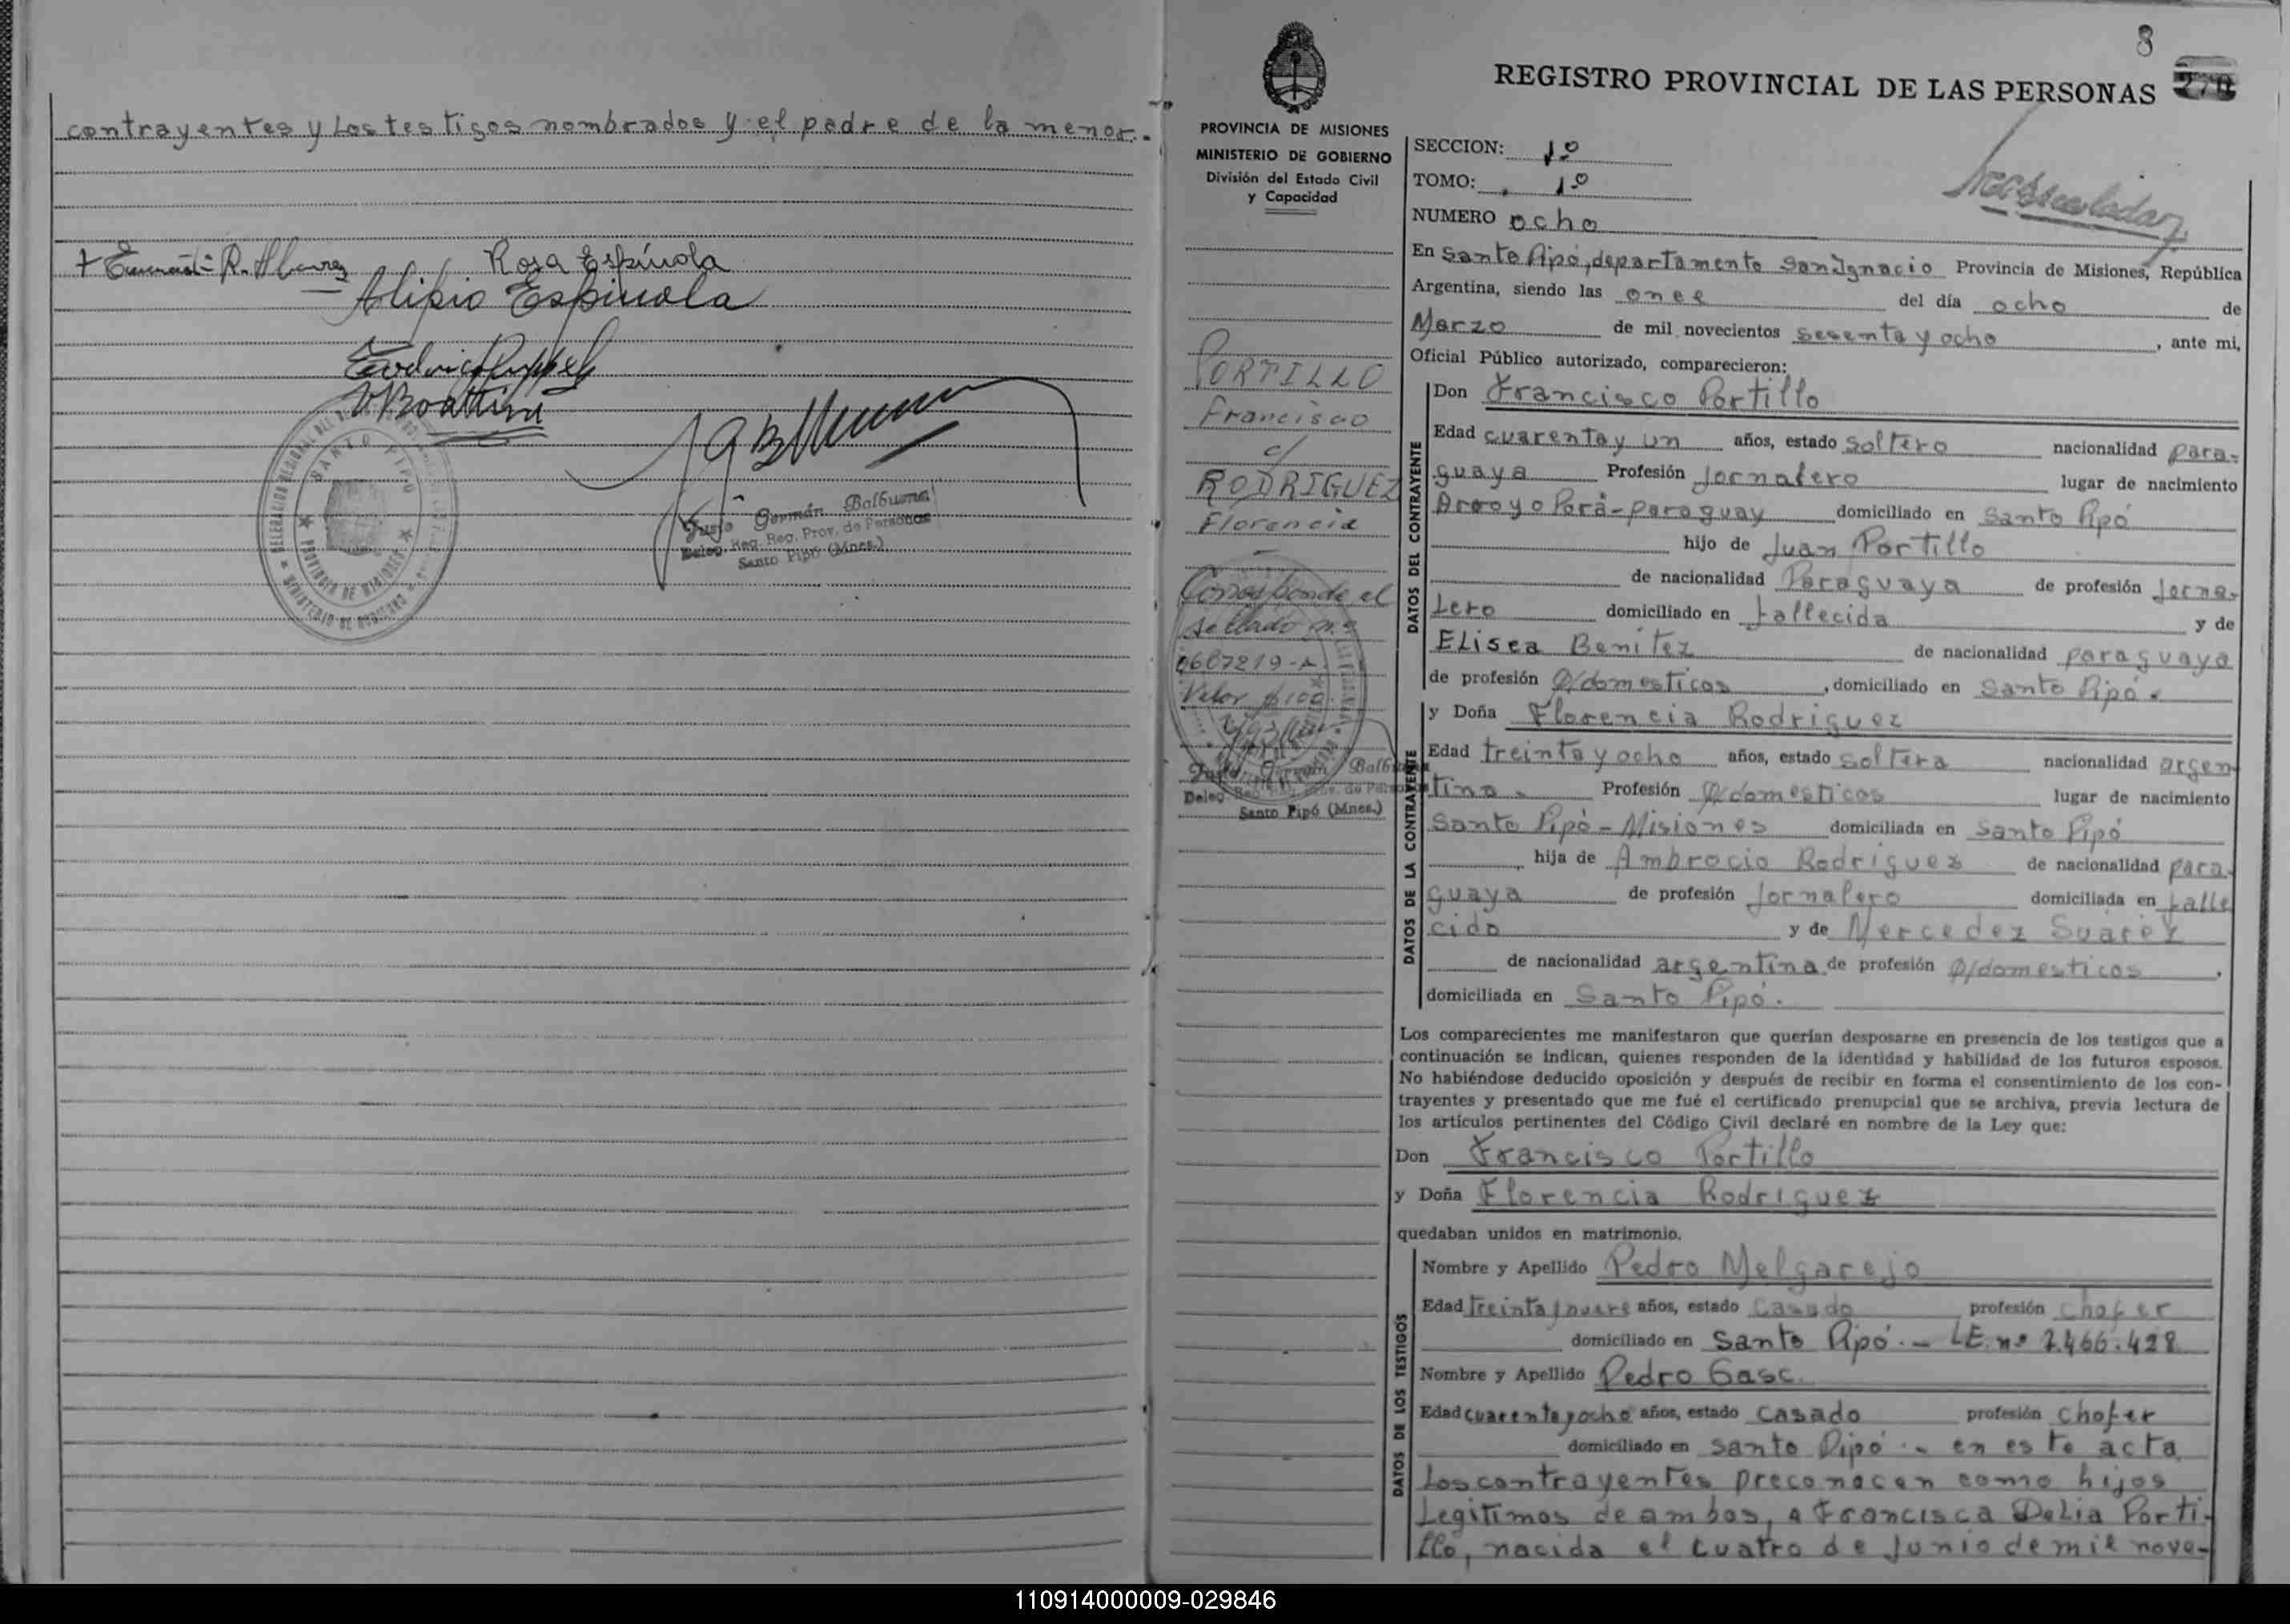 contrayentes y los testigos nombrados y el padre de la menor.-
Rosa Espínola
Alipio Espinola
V Boattini
SANTO PIPO
PROVINCIA DE MISIONES
Justo Germán Balbuena
Deleg. Reg. Reg. Prov. de Personas
Santo Pipó (Mnes.)
8
REGISTRO PROVINCIAL DE LAS PERSONAS
270
PROVINCIA DE MISIONES
MINISTERIO DE GOBIERNO
División del Estado Civil
y Capacidad
PORTILLO
Francisco
c/
RODRIGUEZ
Florencia
Corresponde el
sellado nº
0687219-A.
Valor $ 100
Justo Germán Balbuena
Deleg. Reg. Reg. Prov. de Personas
Santo Pipó (Mnes.)
SECCION: 1º
TOMO: 1º
NUMERO ocho
En Santo Pipó, departamento San Ignacio Provincia de Misiones, República
Argentina, siendo las once del día ocho de
Marzo de mil novecientos sesenta y ocho, ante mi,
Oficial Público autorizado, comparecieron:
DATOS DEL CONTRAYENTE
Don Francisco Portillo
Edad cuarenta y un años, estado soltero nacionalidad para-
guaya Profesión Jornalero lugar de nacimiento
Arroyo Pará-paraguay domiciliado en Santo Pipó
hijo de Juan Portillo
de nacionalidad Paraguaya de profesión Jorna-
lero domiciliado en fallecida y de
Elisea Benítez de nacionalidad paraguaya
de profesión Q/domesticos, domiciliado en Santo Pipó.
DATOS DE LA CONTRAYENTE
y Doña Florencia Rodriguez
Edad treinta y ocho años, estado soltera nacionalidad argen-
tina.- Profesión Q/domesticos lugar de nacimiento
Santo Pipó-Misiones domiciliada en Santo Pipó
hija de Ambrocio Rodriguez de nacionalidad para-
guaya de profesión Jornalero domiciliada en falle
cido y de Mercedez Suárez
de nacionalidad argentina de profesión Q/domesticos,
domiciliada en Santo Pipó.
Los comparecientes me manifestaron que querían desposarse en presencia de los testigos que a
continuación se indican, quienes responden de la identidad y habilidad de los futuros esposos.
No habiéndose deducido oposición y después de recibir en forma el consentimiento de los con-
trayentes y presentado que me fué el certificado prenupcial que se archiva, previa lectura de
los artículos pertinentes del Código Civil declaré en nombre de la Ley que:
Don Francisco Portillo
y Doña Florencia Rodriguez
quedaban unidos en matrimonio.
DATOS DE LOS TESTIGOS
Nombre y Apellido Pedro Melgarejo
Edad treinta y nueve años, estado casado profesión chofer
domiciliado en Santo Pipó.- LE.nº 7.466.428
Nombre y Apellido Pedro Gasc.
Edad cuarenta y ocho años, estado casado profesión chofer
domiciliado en Santo Pipó.- en este acta
los contrayentes preconocen como hijos
legitimos de ambos, a Francisca Delia Porti-
llo, nacida el cuatro de junio de mil nove-
110914000009-029846